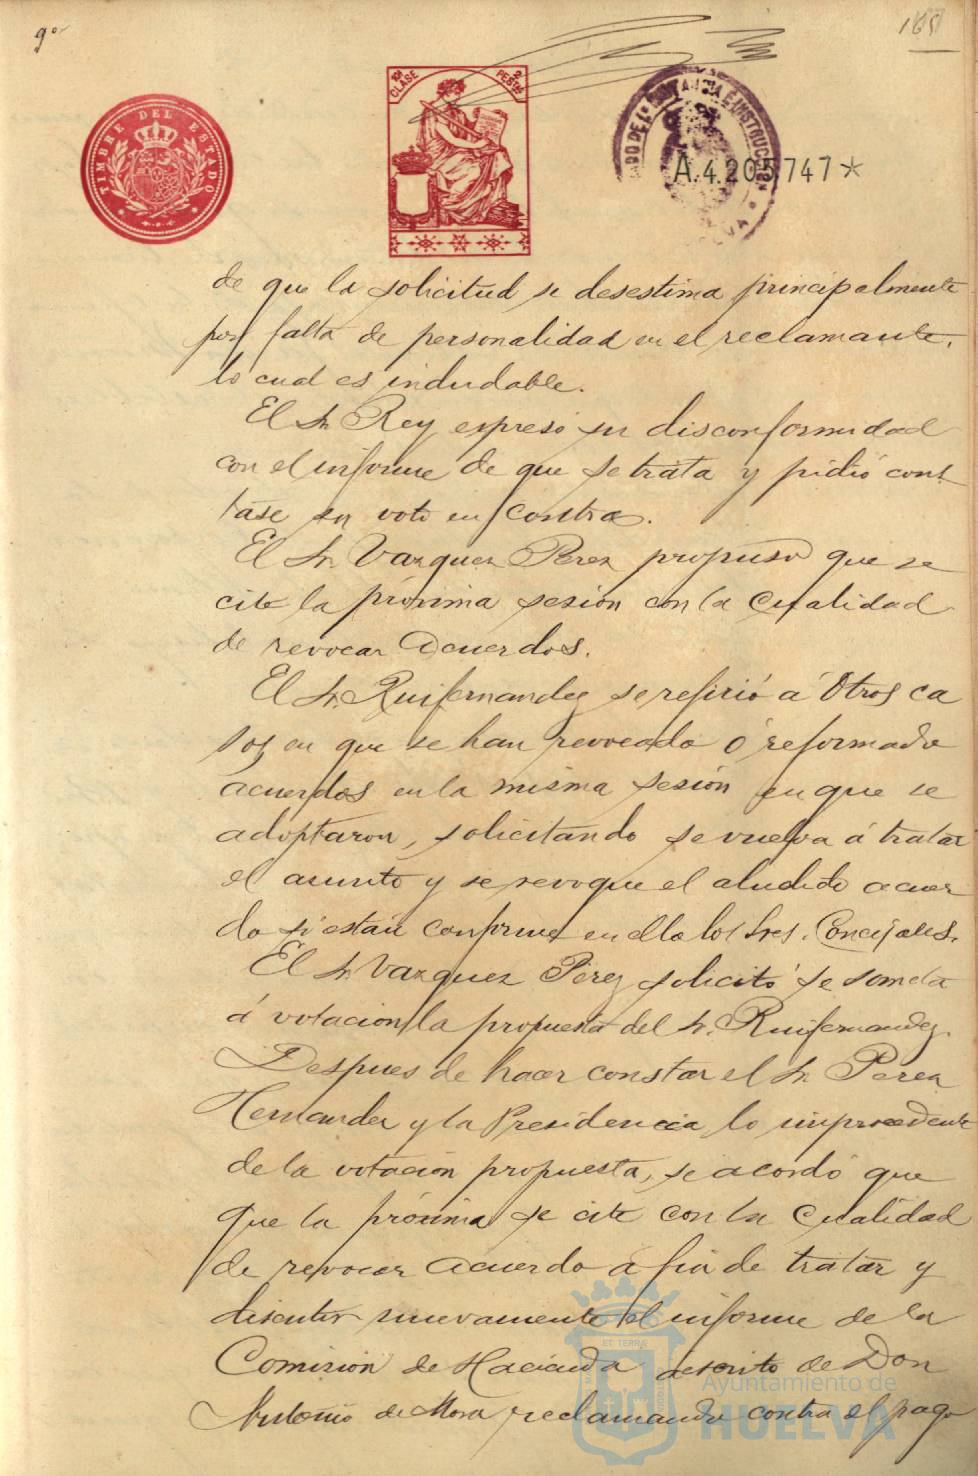 9º
165
TIMBRE DEL ESTADO
10ª CLASE
2 PESTAS
A.4.205,747*
de que la solicitud se desestima principalmente
por falta de personalidad en el reclamante,
lo cual es indudable.
El Sr. Rey espresó su disconformidad
con el informe de que se trata y pidió cons
tase su voto en contra.
El Sr. Vazquez Perez propuso que se
cite la próxima sesion con la cualidad
de revocar acuerdos.
El Sr. Ruifernandez se refirió á otros ca
sos en que se han revocado ó reformado
acuerdos en la misma sesión en que se
adoptaron, solicitando se vuelva á tratar
el asunto y se revoque el aludido acuer
do si están conformes en ello los Sres. Concejales.
El Sr. Vazquez Pérez solicitó se someta
á votación la propuesta del Sr. Ruifernandez.
Despues de hacer constar el Sr. Perez
Hernandez y la Presidencia lo improcedente
de la votación propuesta, se acordó que
que la próxima se cite con la cualidad
de revocar acuerdo á fin de tratar y
discutir nuevamente el informe de la
Comisión de Hacienda escrito de Don
Antonio de Mora reclamando contra el pago
Ayuntamiento de
HUELVA